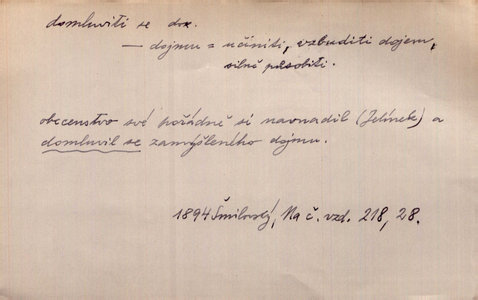 domluviti se dok.
— dojmu = učiniti, vzbuditi dojem,
silně působiti.
obecenstvo své pořádně si navnadil (Jelínek) a
domluvil se zamýšleného dojmu.
1894 Šmilovský, Na č. vzd. 218, 28.